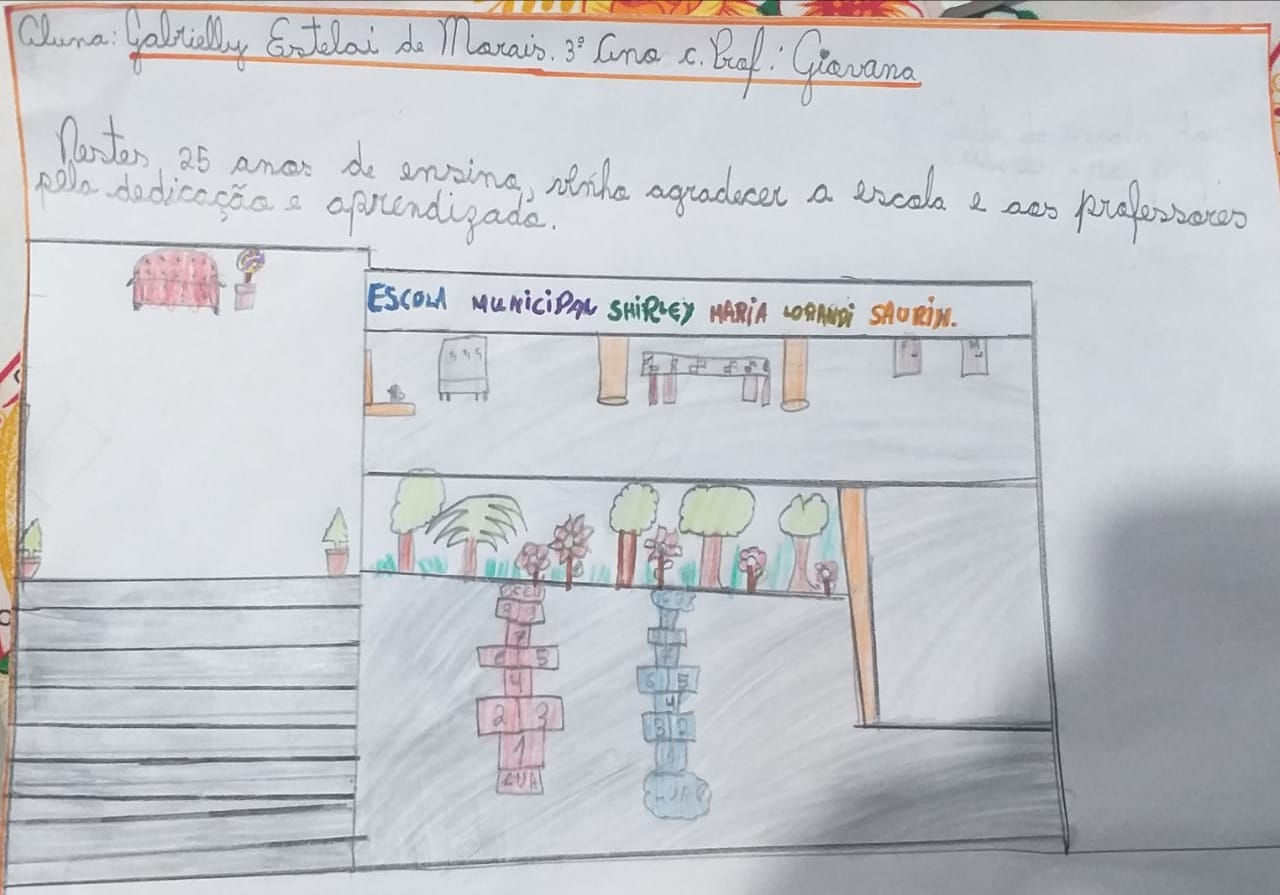 Aluna: Gabrielly Estelai de Morais. 3º Ano C. Prof.: Giovana
Nestes 25 anos de ensino, venho agradecer a escola e aos professores
pela dedicação e aprendizado.
ESCOLA MUNICIPAL SHIRLEY MARIA LORANDI SAURIN.
8 9
7
6 5
6 5
4
4
2 3
3 2
1
1
LUA
LUA